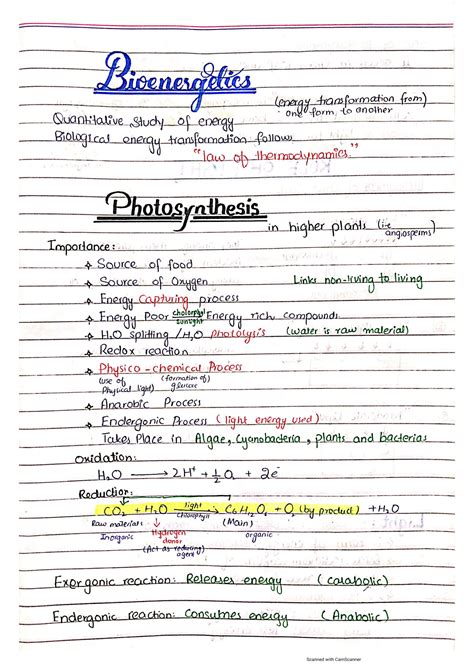 Bioenergetics
(energy transformation from)
one form to another
Quantitative study of energy
Biological energy transformation follows
"law of thermodynamics."
Photosynthesis
in higher plants (i.e
angiosperms)
Importance:
Source of food
Source of Oxygen Links non-living to living
Energy Capturing process
Energy Poor chlorophyll Energy rich compounds
sunlight
H₂O splitting / H₂O Photolysis (water is raw material)
Redox reaction
Physico-chemical Process
(use of (formation of)
Physical light) glucose
Anarobic Process
Endergonic Process (light energy used)
Takes Place in Algae, Cyanobacteria, plants and bacterias
Oxidation:
H₂O → 2H⁺ + ½O₂ + 2e⁻
Reduction:
CO₂ + H₂O light → C₆H₁₂O₆ + O₂ (by product) + H₂O
chlorophyll
Raw materials (Main)
Inorganic Hydrogen organic
donor
(Act as reducing
agent)
Exergonic reaction: Releases energy (catabolic)
Endergonic reaction: Consumes energy (Anabolic)
Scanned with CamScanner